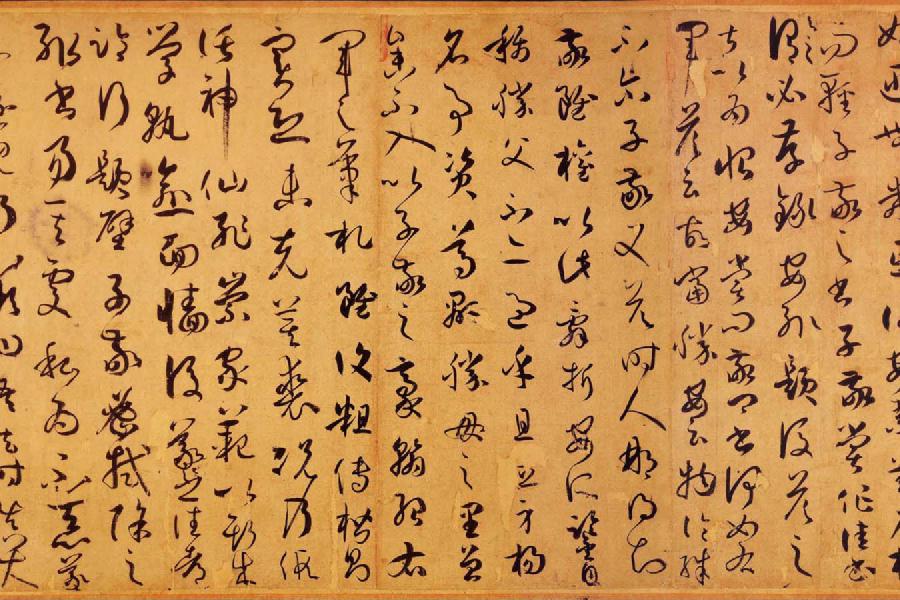 而輕子敬之書子敬嘗作佳書
謂必存錄安輒題後答之
甚以為恨安嘗問敬卿書何如右
軍答云故當勝安云物論殊
不尒子敬又答時人那得知
敬雖權以此辭折安所鑒自
稱勝父不亦過乎且立身揚
名事資尊顯勝母之里曾
參不入以子敬之豪翰紹右
軍之筆札雖復粗傳楷則
實恐未克箕裘況乃假
託神仙恥崇家範以斯成
學孰愈面牆後羲之往都
臨行題壁子敬密拭除之
輒書易其處私為不惡羲
之還見乃歎曰吾去時真大